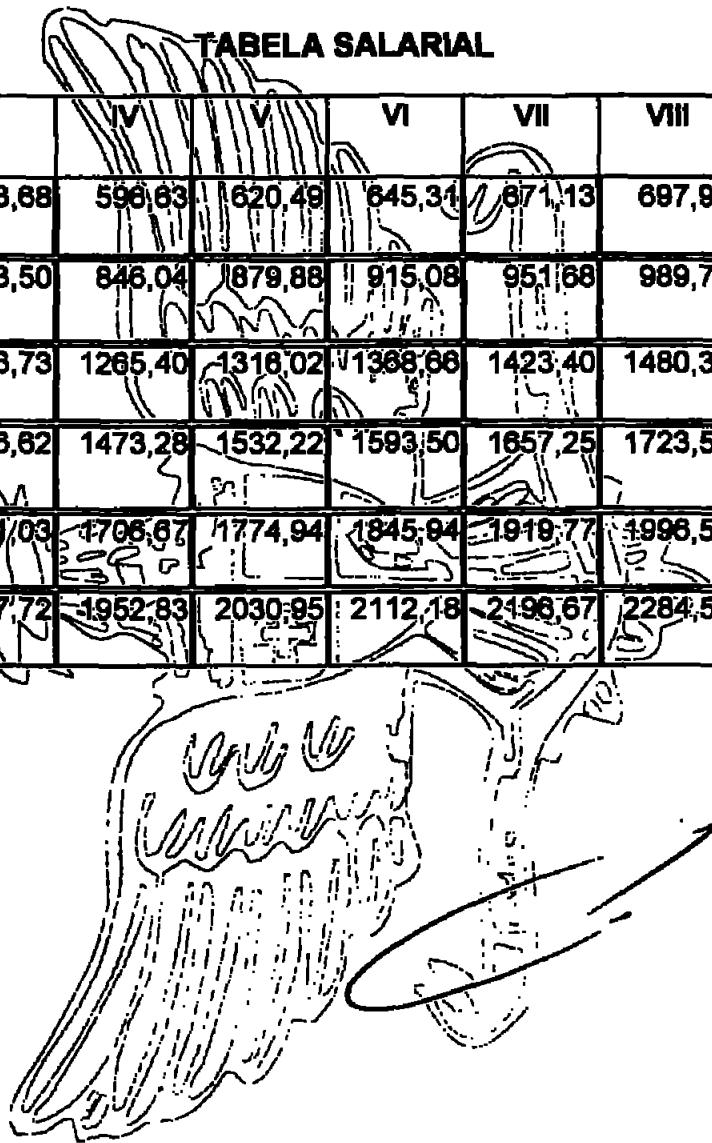 TABELA SALARIAL
IV V VI VII VIII
3,68 596,63 620,49 645,31 671,13 697,9
3,50 846,04 879,88 915,08 951,68 989,7
3,73 1265,40 1316,02 1368,66 1423,40 1480,3
6,62 1473,28 1532,22 1593,50 1657,25 1723,5
1,03 1706,67 1774,94 1845,94 1919,77 1996,5
7,72 1952,83 2030,95 2112,18 2196,67 2284,5